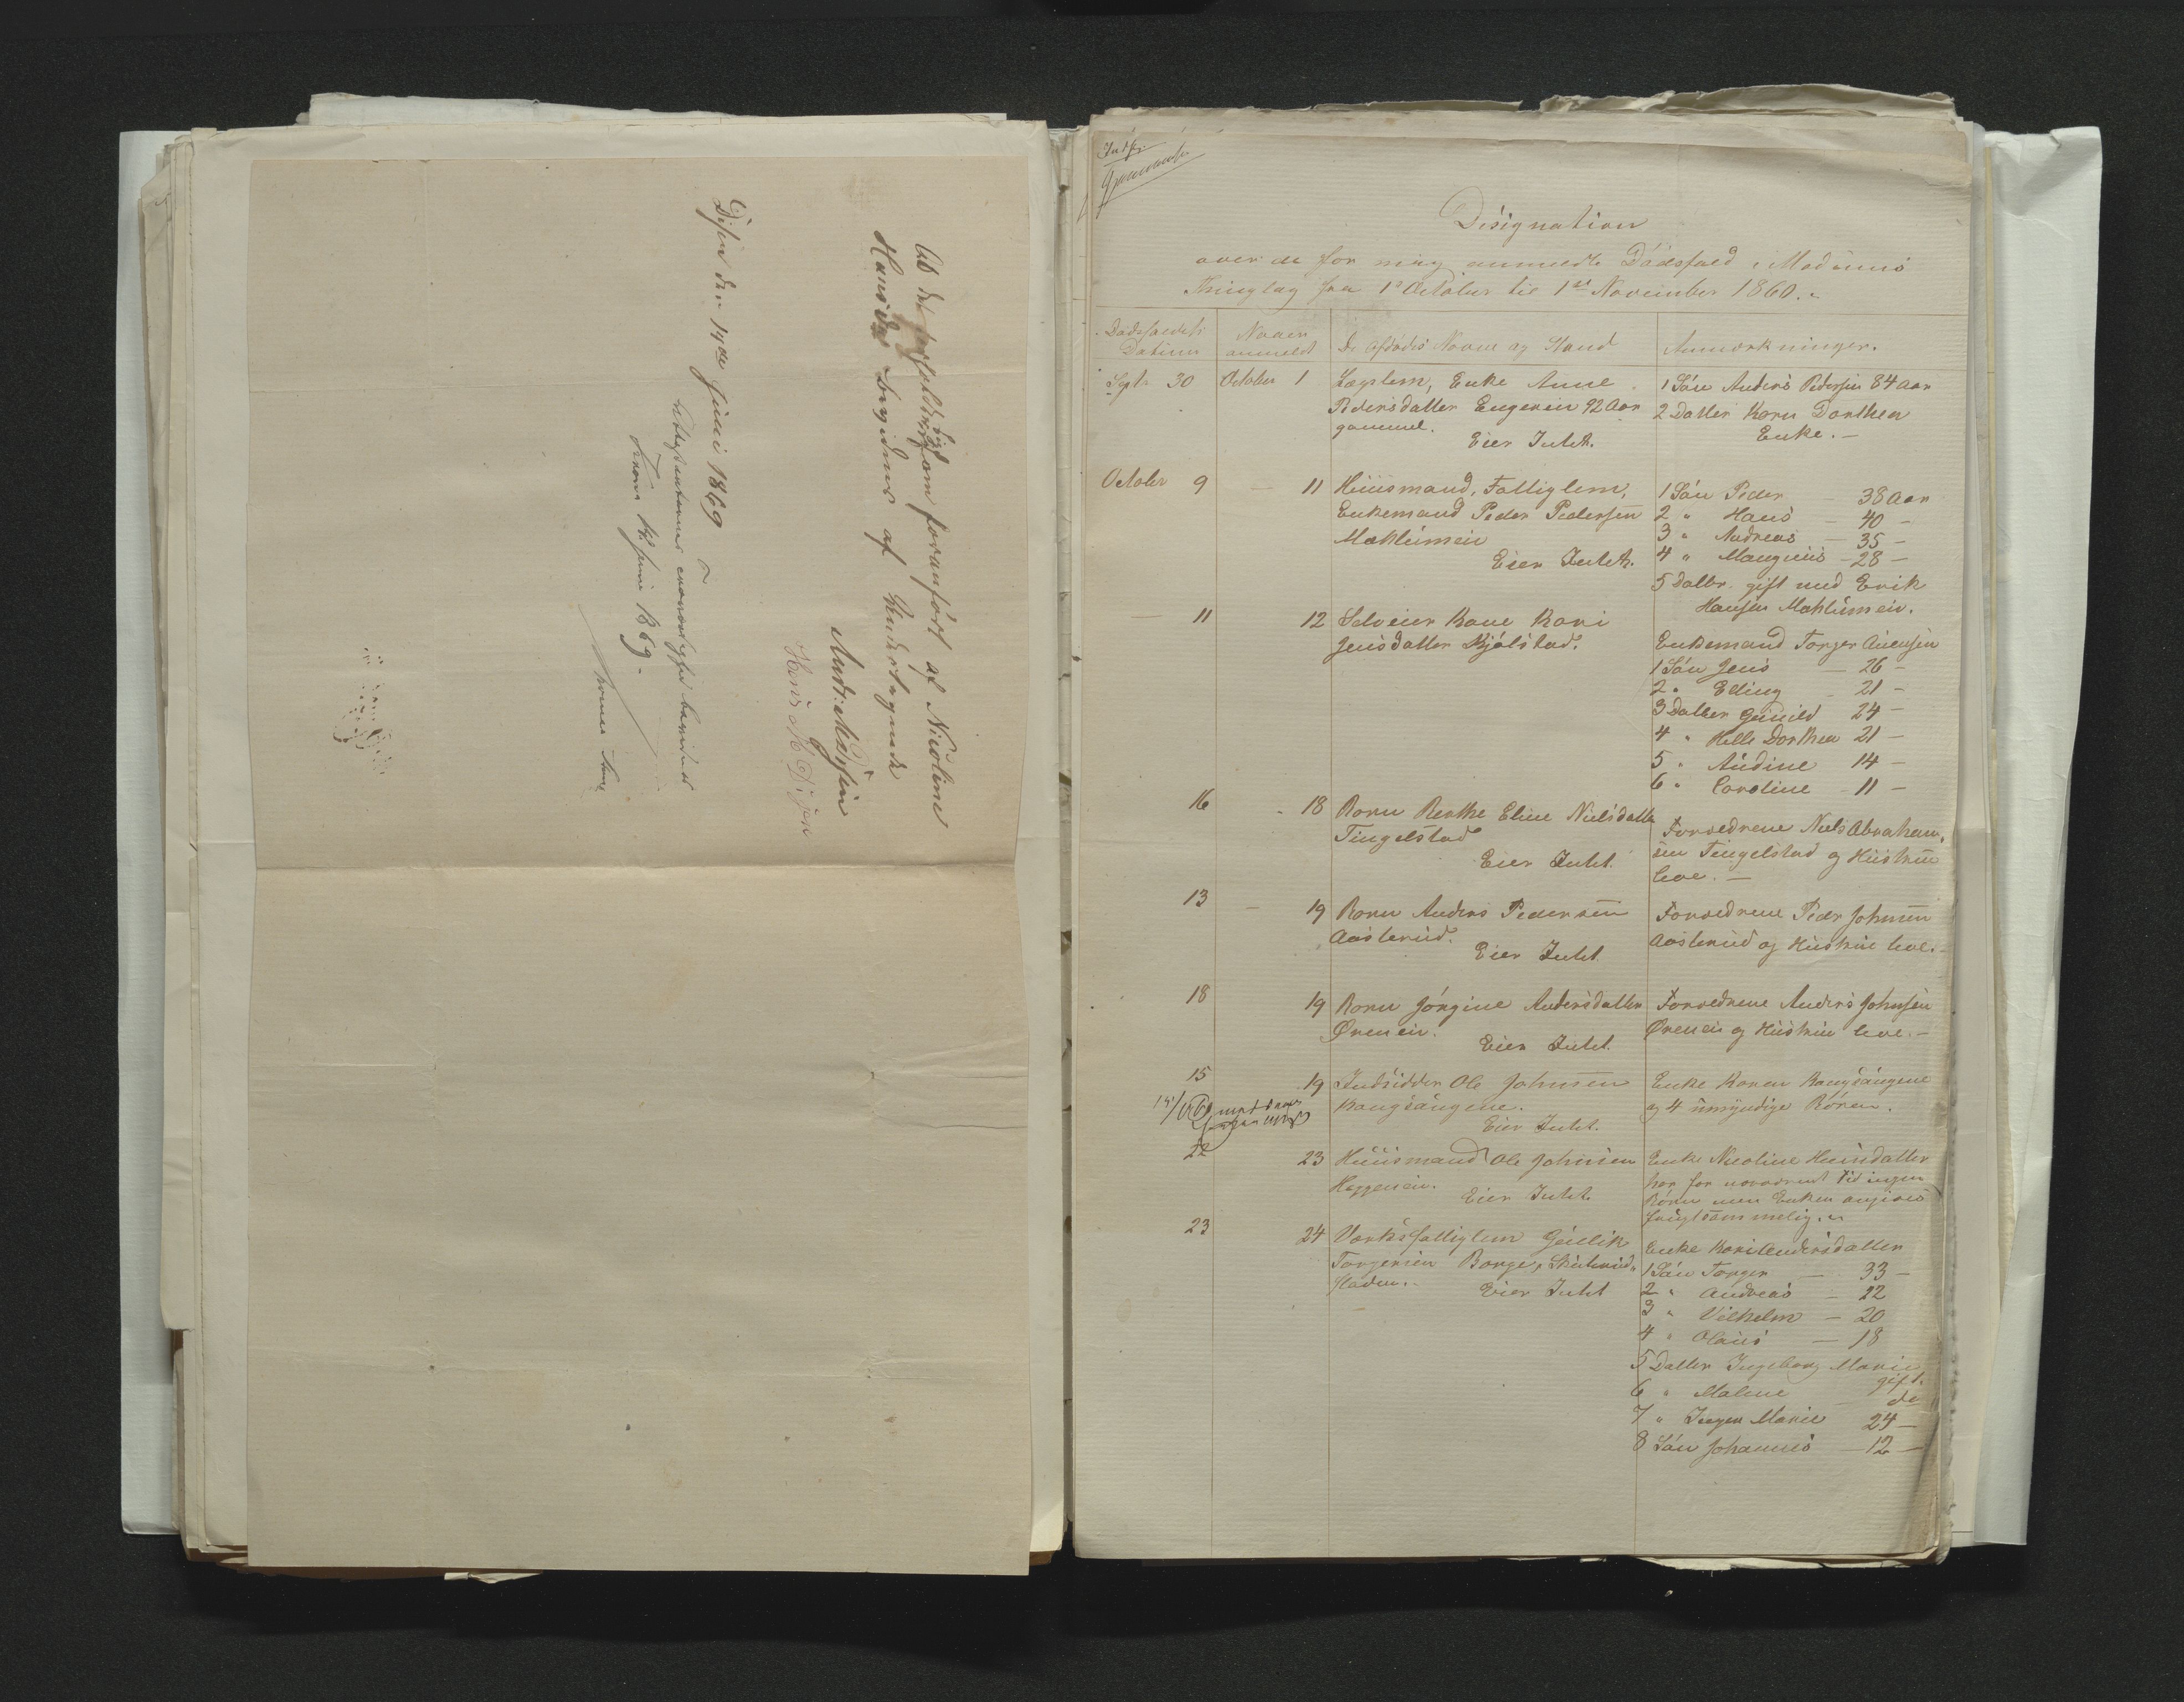 At det forholder sig som foranført af Nicoline
Hansdatter bevidnes af Undertegnede
Andr: Madsen
Hans M Disen
Disen den 14de Juni 1869
Attestanterne ere vederhæftige bevidnes
Juni 1869.
Indk:
Designation
over de for mig anmeldte Dødsfald i Modums
Thinglag fra 1ste October til 1ste November 1860.
Dødsfaldets
Datum
Naar
anmeldt
De Afdødes Navne og Stand
Anmærkninger.
Sept. 30 October 1 Lægslem, Enke Anne
Pedersdatter Engereie 92 Aar
gammel.
Eier Intet.
1 Søn Anders Pedersen 84 Aar
2 Datter Karen Dorthea
Enke.
October 9 — 11 Huusmand, Fattiglem,
Enkemand Peder Pedersen
Mæhlumeie
Eier Intet.
1 Søn Peder — 38 Aar
2 " Hans — 40 —
3 " Andreas — 35 —
4 " Mangnus — 28 —
5 Datter gift med Erik
Hansen Mæhlumeie.
— 11 12 Selveier Kone Kari
Jensdatter Kjølstad.
Enkemand Torger Evensen
1 Søn Jens — 26 —
2 " Elling — 21 —
3 Datter Gunild 24 —
4 " Helle Dorthea 21 —
5 " Audine 14 —
6 " Caroline — 11 —
16 18 Barn Berthe Eline Nielsdatter
Tingelstad
Eier Intet.
Forældrene Niels Abraham-
sen Tingelstad og Hustrue
leve. —
13 — 19 Barn Anders Pedersen
Aasterud.
Eier Intet
Forældrene Peder Johnsen
Aasterud og Hustrue leve. —
18 19 Barn Jørgine Andersdatter
Øreneie.
Eier Intet.
Forældrene Anders Johnsen
Øreneie og Hustrue leve. —
15 19 Indsidder Ole Johnsen
Kaugsangene.
Eier Intet.
Enke Karen Kaugsangene
og 4 umyndige Børn.
22 23 Huusmand Ole Johnsen
Haggeneie.
Eier Intet
Enke Nicoline Hansdatter
har for nærværende Tid ingen
Børn men Enken angives
frugtsommelig.
23 24 Værksfattiglem Gulik
Torgersen Borge, Skuterud-
fladen.
Eier Intet
Enke Kari Andersdatter
1 Søn Torger — 33 —
2 " Andreas — 22
3 " Vilhelm — 20
4 " Olaus — 18
5 Datter Ingeborg Marie
gift.
6 " Malene — do
7 " Inger Marie 24 —
8 Søn Johannes — 12 —